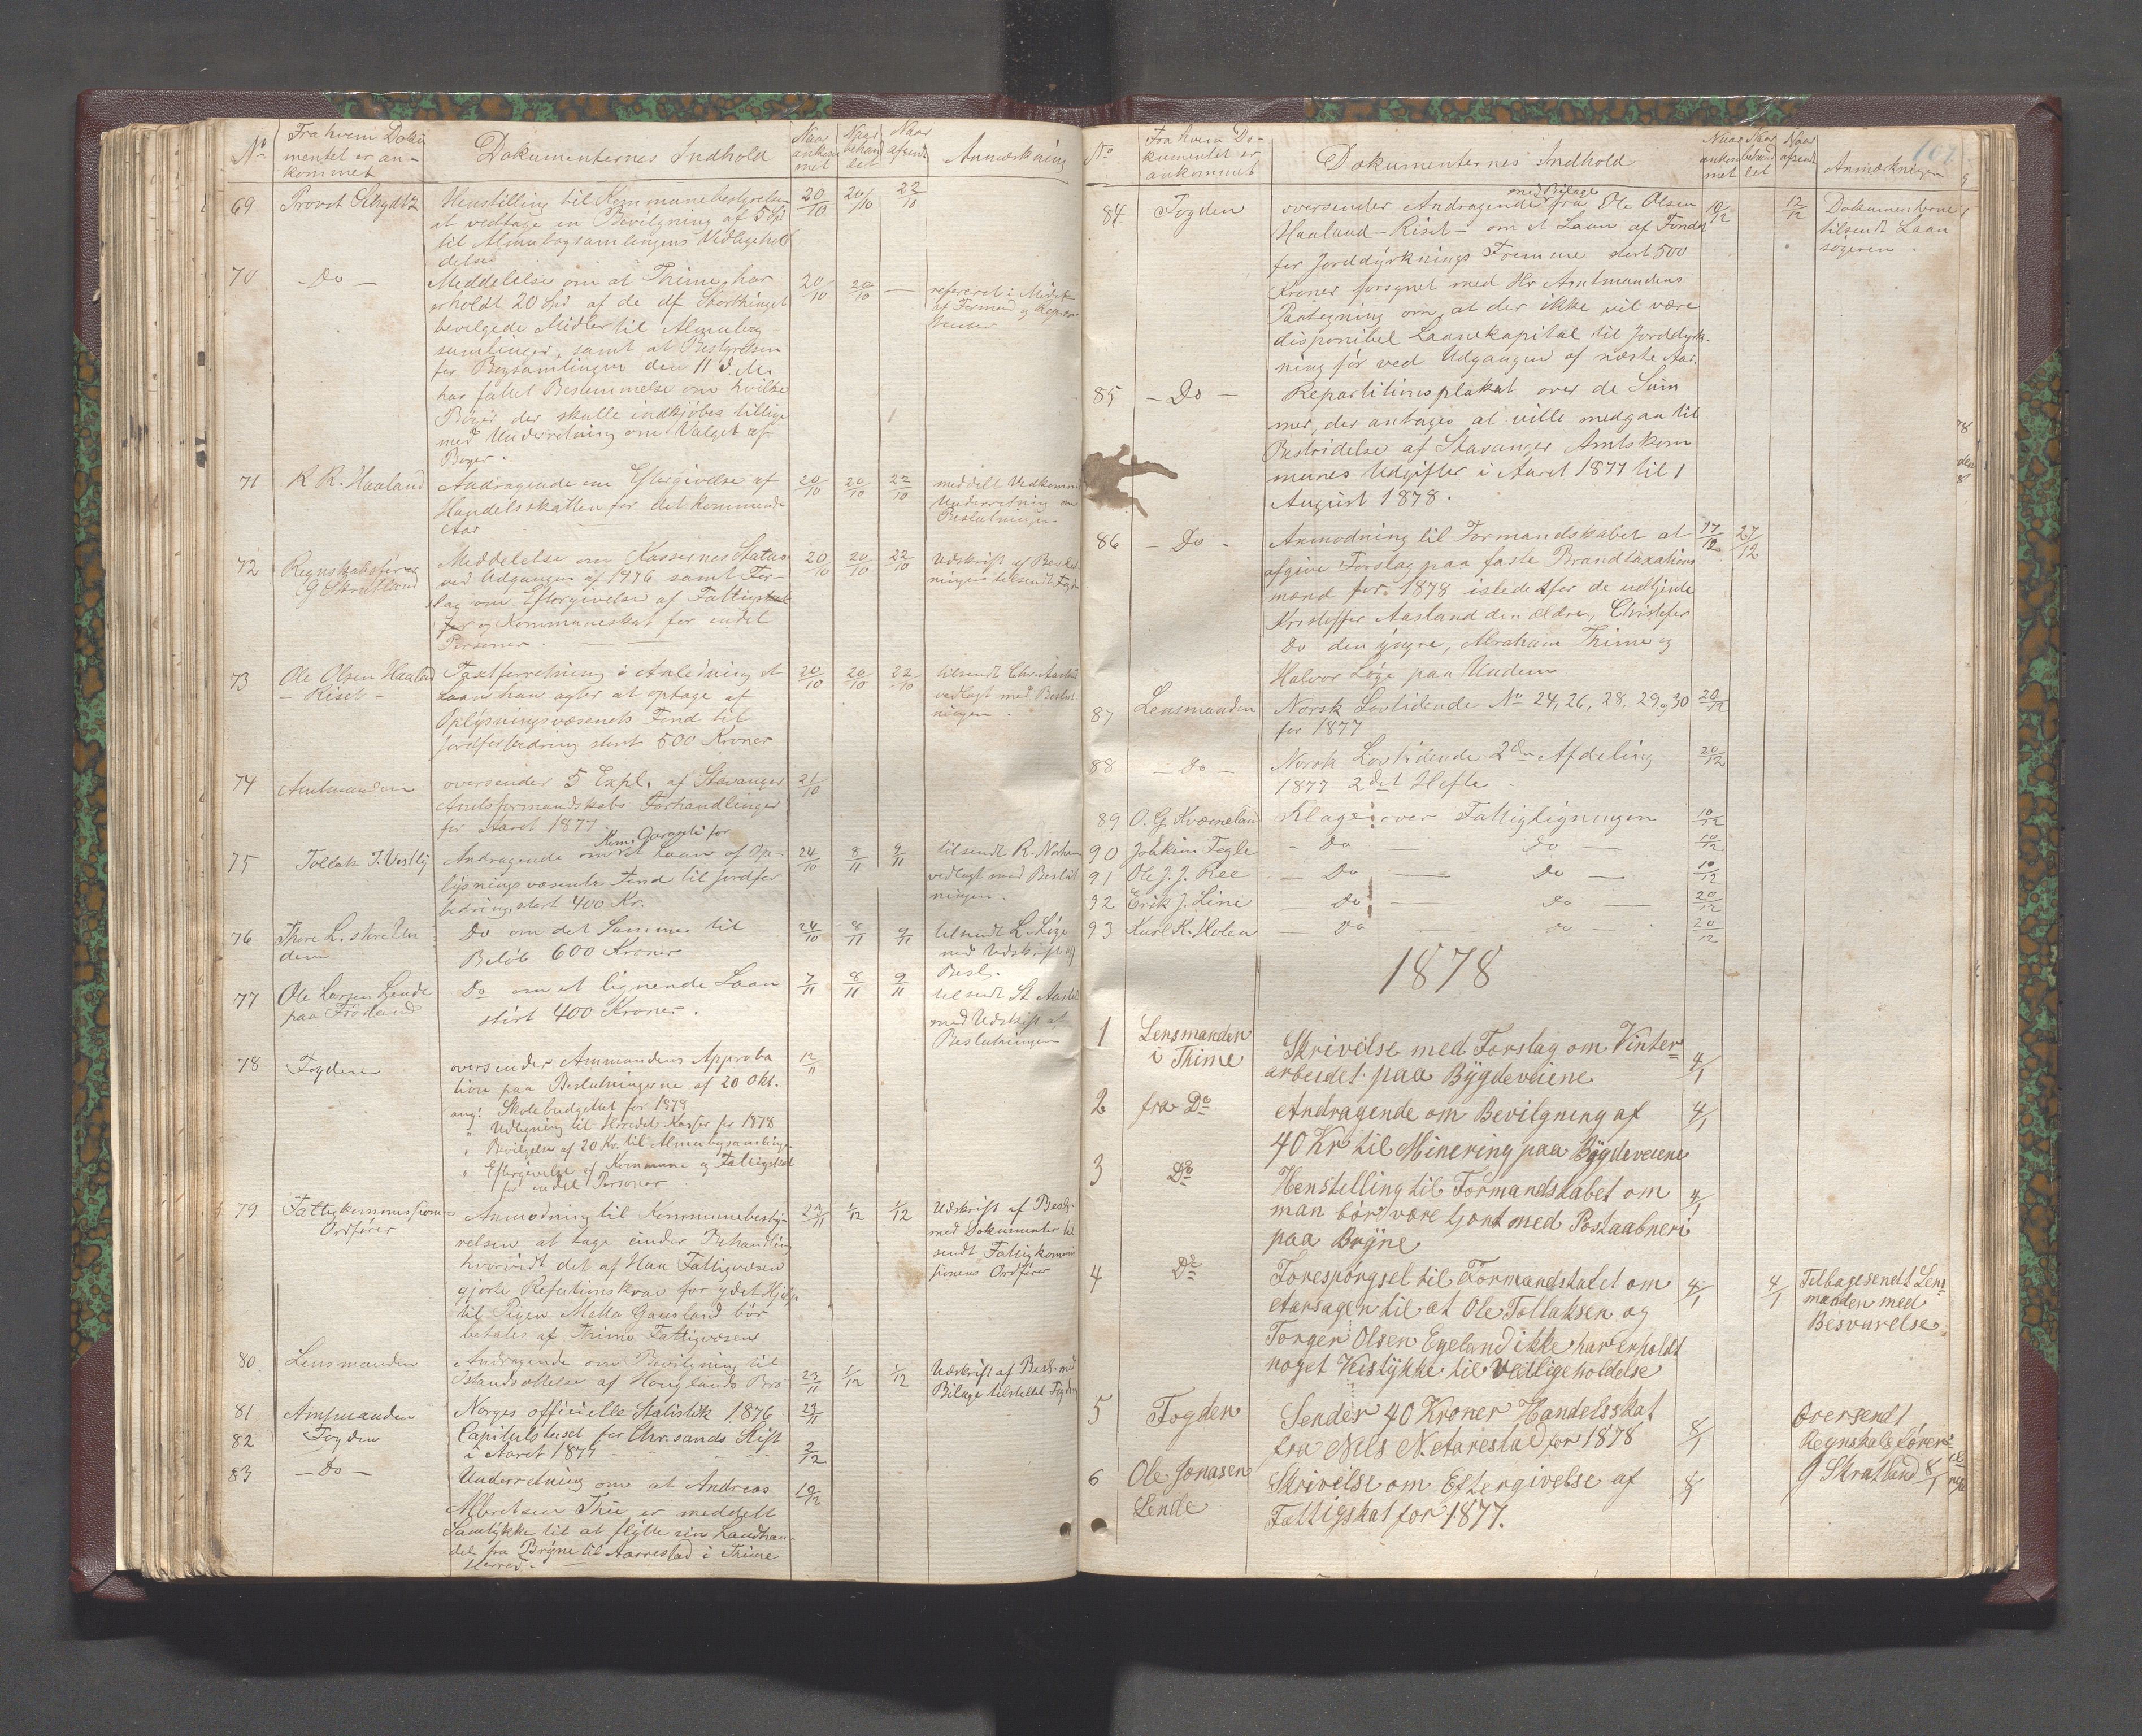 No
Fra hvem Doku
mentet er an-
kommet
Dokumenternes Indhold
Naar
ankom
met
Naar
behan
let
Naar
afsendt
Anmærkning
69 Provst Schydtz Henstilling til Kommunebestyrelsen 20/10 20/10 22/10
at vedtage en Bevilgning af 5 Spd
til Almuebogsamlingens Vedligehol
delse
70 - Do - Meddelelse om at Thime har 20/10 20/10 - refereret i Møde
erholdt 20 Spd af de af Storthinget af Formænd og Repræ
bevilgede Midler til Almuebog
samlinger, samt at Bestyrelsen
for Bogsamlingen den 11 d. M.
har fattet Bestemmelse om hvilke
Bøger der skulle indkjøbes tillige
med Underretning om Valget af
Bøger.
71 R R. Haaland Andragende om Eftergivelse af 20/10 20/10 22/10 meddelt Vedkommende
Handelsskatten for det kommende Underretning om
Aar Beslutningen
72 Regnskabsfører Meddelelse om Kassernes Status 20/10 20/10 22/10 Udskrift af Beslut
G Skrutland ved Udgangen af 1876 samt For- ningen tilsendt Fogden
slag om Eftergivelse af Fattigskat
for og Kommuneskat for endel
Personer.
73 Ole Olsen Haaland Taxtforretning i Anledning et 20/10 20/10 22/10 tilsendt Chr. Aasland
- Riset - Laan han agter at optage af vedlagt med Beslut
Oplysningsvæsenets Fond til ningen.
jordforbedring stort 500 Kroner
74 Amtmanden oversender 5 Expl. af Stavanger 21/10
Amtsformandskabs Forhandlinger
for Aaret 1877
Kom. Garanti for
75 Tollak T. Vestly Andragende om et Laan af Op- 24/10 8/11 9/11 tilsendt R. Norheim
lysningsvæsenets Fond til jordfor vedlagt med Beslut
bedring stort 400 Kr. ningen.
76 Thore L. store Un Do om det Samme til 24/10 8/11 9/11 tilsendt L. Løge
dem Beløb 600 Kroner med Udskrift af
Besl.
77 Ole Larsen Lende Do om et lignende Laan 7/11 8/11 9/11 tilsendt St. Aasland
paa Frøiland stort 400 Kroner. med Udskrift af
Beslutningen
78 Fogden oversender Ammandens Approba 12/11
tion paa Beslutningerne af 20 Okt.
ang: Skolebudgettet for 1878
" Udligning til Herredets Kasser for 1878
" Bevilgelse af 20 Kr. til Almuebogsamlingen
" Eftergivelse af Kommune og Fattigskat
for endel Personer.
79 Fattigkommissionens Anmodning til Kommunebesty- 23/11 1/12 1/12 Udskrift af Besl.
Ordfører relsen at tage under Behandling med Dokumenter til
hvorvidt det af Haa Fattigvæsen sendt Fattigkommis
gjorte Refutionskrav for ydet Hjælp sionens Ordfører
til Pigen Metta Gausland bør
betales af Thime Fattigvæsen
80. Lensmanden Andragende om Bevilgning til
Istandsættelse af Hauglands Bro 23/11 1/12 1/12 Udskrift af Besl. med
Bilage tilstillet Fogden
81 Ammanden Norges officielle Statistik 1876 23/11
82 Fogden Capitulstaxt for Chr.sands Stift
i Aaret 1877 - - - 3/12
83 - Do - Underretning om at Andreas 10/12
Albretsen Thu er meddelt
Samtykke til at flytte sin Landhan-
del fra Bryne til Aarrestad i Thime
Herred.
107
No
Fra hvem Do-
kumentet er
ankommet
Dokumenternes Indhold
Naar
ankom
met
Naar
behand
let
Naar
afsendt
Anmærkningen
med Bilage
84 Fogden oversender Andragende fra Ole Olsen 10/12 12/12 Dokumenterne
Haaland - Riset - om et Laan af Fondet tilsendt Laan
for Jorddyrknings Fremme stort 500 søgeren.
Kroner forsynet med Hr Amtmandens
Paategning om, at der ikke vil være
disponibel Laanekapital til Jorddyrk-
ning før ved Udgangen af næste Aar.
85 - Do - Repartitionsplakat over de Sum
mer, der antages at ville medgaa til
Bestridelse af Stavanger Amtskom
munes Udgifter i Aaret 1877 til 1
August 1878.
86 - Do - Anmodning til Formandskabet at 17/12 27/12
afgive Forslag paa faste Brandtaxations
mænd for 1878 istedetfor de udtjente
Kristoffer Aasland den ældre, Christofer
Do den yngre, Abraham Thime og
Halvor Løge paa Undem
87 Lensmanden Norsk Lovtidende No 24, 26, 28, 29 og 30 20/12
for 1877
88 - Do - Norsk Lovtidende 2den Afdeling 20/12
1877 2det Hefte.
89 O. G. Kværneland Klage over Fattigligningen 10/12
90 Joakim Fogle - Do - Do - 10/12
91 Ole J. J. Ree - Do - Do - 10/12
92 Erik J. Line Do - Do - 20/12
93 Karl K. Holen - Do - Do - 20/12
1878
1 Lensmanden Skrivelse med Forslag om Vinter 4/1
i Thime arbeidet paa Bygdeveiene
2 fra Do Andragende om Bevilgning af 4/1
40 Kr til Minering paa Bygdeveiene
3 Do Henstilling til Formandskabet om 4/1
man bør være tjent med Postaabneri
paa Bryne
4 Do Forespørgsel til Formandskabet om 4/1 4/1 Tilbagesendt Lens
Aarsagen til at Ole Tollaksen og manden med
Torger Olsen Egeland ikke har erholdt Besvarelse
noget Veistykke til Vedligeholdelse
5 Fogden Sender 40 Kroner Handelsskat 8/1 Oversendt
fra Nils N Aarestad for 1878 Regnskabsfører
6 Ole Jonasen Skrivelse om Eftergivelse af 8/1 G Skrutland 8/1
Lende Fattigskat for 1877.